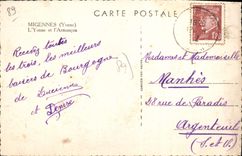 89
MIGENNES (Yonne)
L'Yonne et l'Armançon
CARTE POSTALE
Recevez toutes
les trois, les meilleurs
baisers de Bourgogne
de Lucienne
et Denise
Mesdames et Mademoiselle
Manhès
28 rue de Paradis
Argenteuil
(S. et O.)